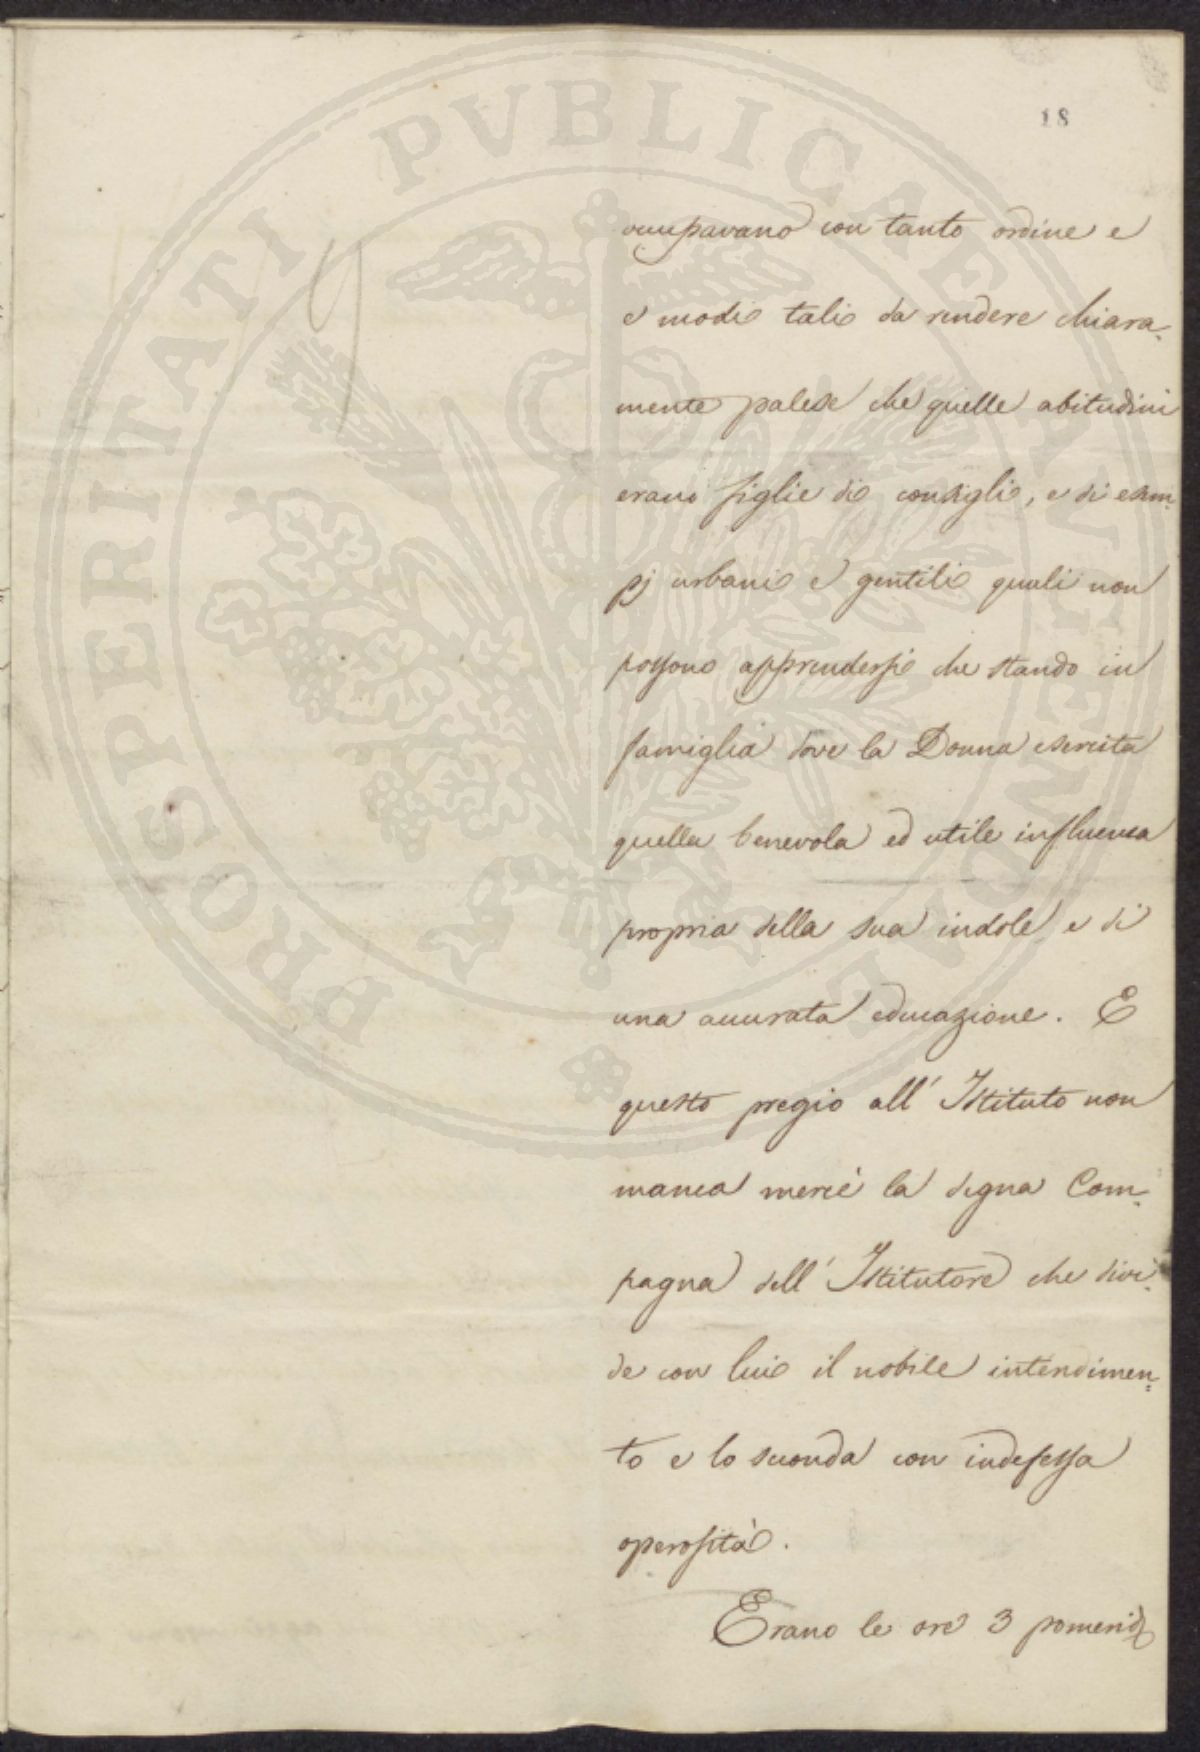 PROSPERITATI PVBLICAE AVGENDAE
18
9
occupavano con tanto ordine e
e modi tali da rendere chiara=
mente palese che quelle abitudini
erano figlie di consigli, e di esem=
pj urbani e gentili quali non
possono apprendersi che stando in
famiglia dove la Donna esercita
quella benevola ed utile influenza
propria della sua indole e di
una accurata educazione. E
questo pregio all' Istituto non
manca mercè la degna Com=
pagna dell' Istitutore che divi=
de con lui il nobile intendimen=
to e lo seconda con indefessa
operosità.
Erano le ore 3 pomerid